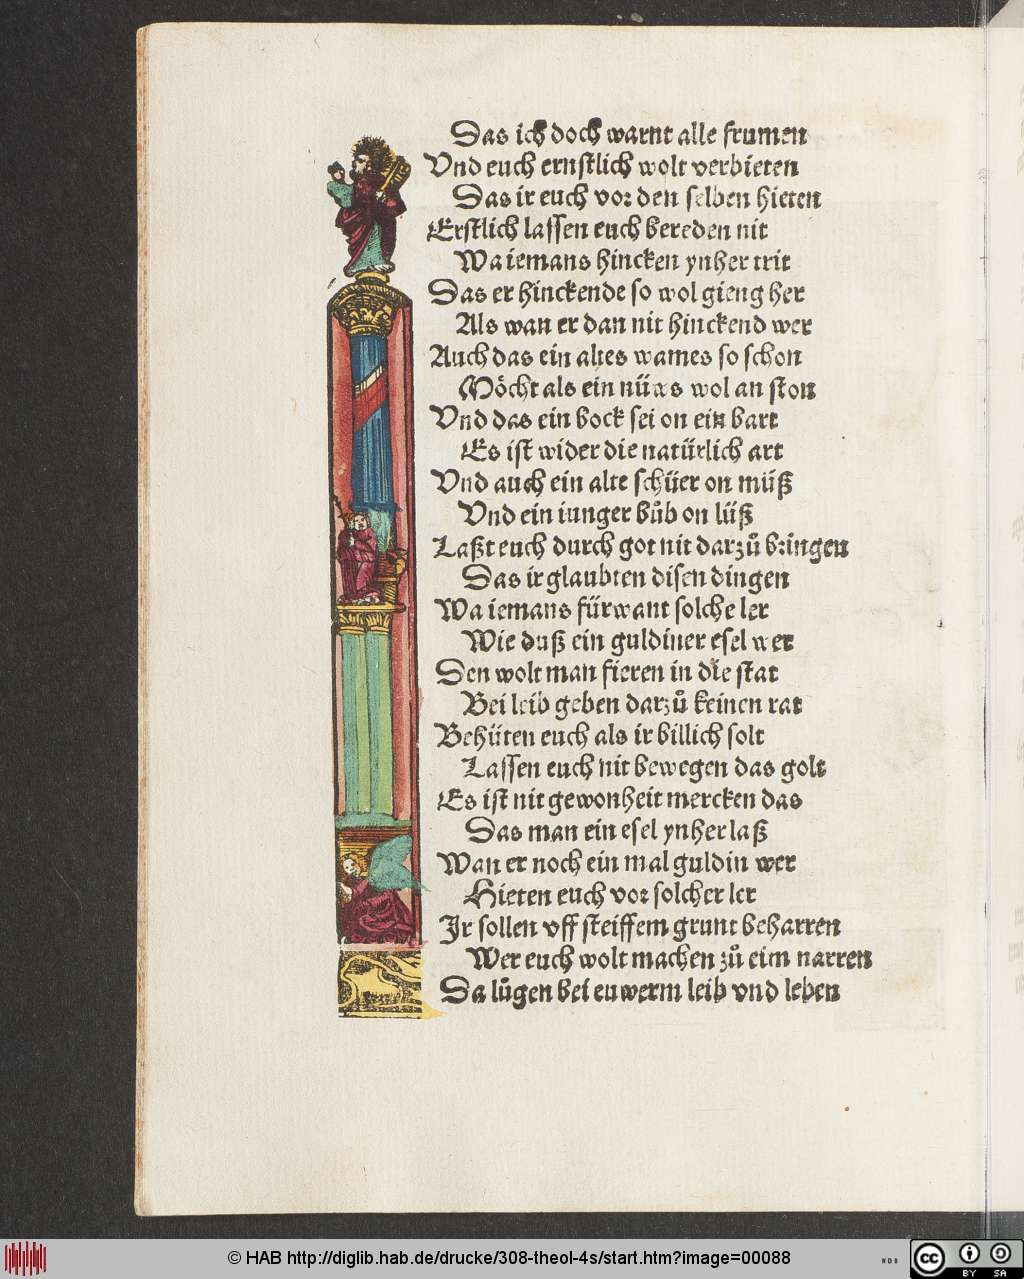 Das ich doch warnt alle frumen
Vnd euch ernſtlich wolt verbieten
Das ir euch voꝛ den ſelben hieten
Erſtlich laſſen euch bereden nit
Wa iemans hincken ynher trit
Das er hinckende ſo wol gieng her
Als wan er dan nit hinckend wer
Auch das ein altes wames ſo ſchon
Möcht als ein nüwes wol an ſton
Vnd das ein bock ſei on ein bart
Es iſt wider die natürlich art
Vnd auch ein alte ſchüer on müß
Vnd ein iunger bůb on lüß
Laßt euch durch got nit darzů bꝛingen
Das ir glaubten diſen dingen
Wa iemans fürwant ſolche ler
Wie duß ein guldiner eſel wer
Den wolt man fieren in die ſtat
Bei leib geben darzů keinen rat
Behüten euch als ir billich ſolt
Laſſen euch nit bewegen das golt
Es iſt nit gewonheit mercken das
Das man ein eſel ynher laß
Wan er noch ein mal guldin wer
Hieten euch voꝛ ſolcher ler
Ir ſollen vff ſteiffem grunt beharren
Wer euch wolt machen zů eim narren
Da lůgen bei euwerm leib vnd leben
© HAB http://diglib.hab.de/drucke/308-theol-4s/start.htm?image=00088
WDB
cc BY SA